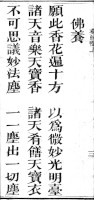 佛養
願此香花遍十方 以為微妙光明臺
諸天音樂天寶香 諸天肴饍天寶衣
不可思議妙法塵 一一塵出一切塵